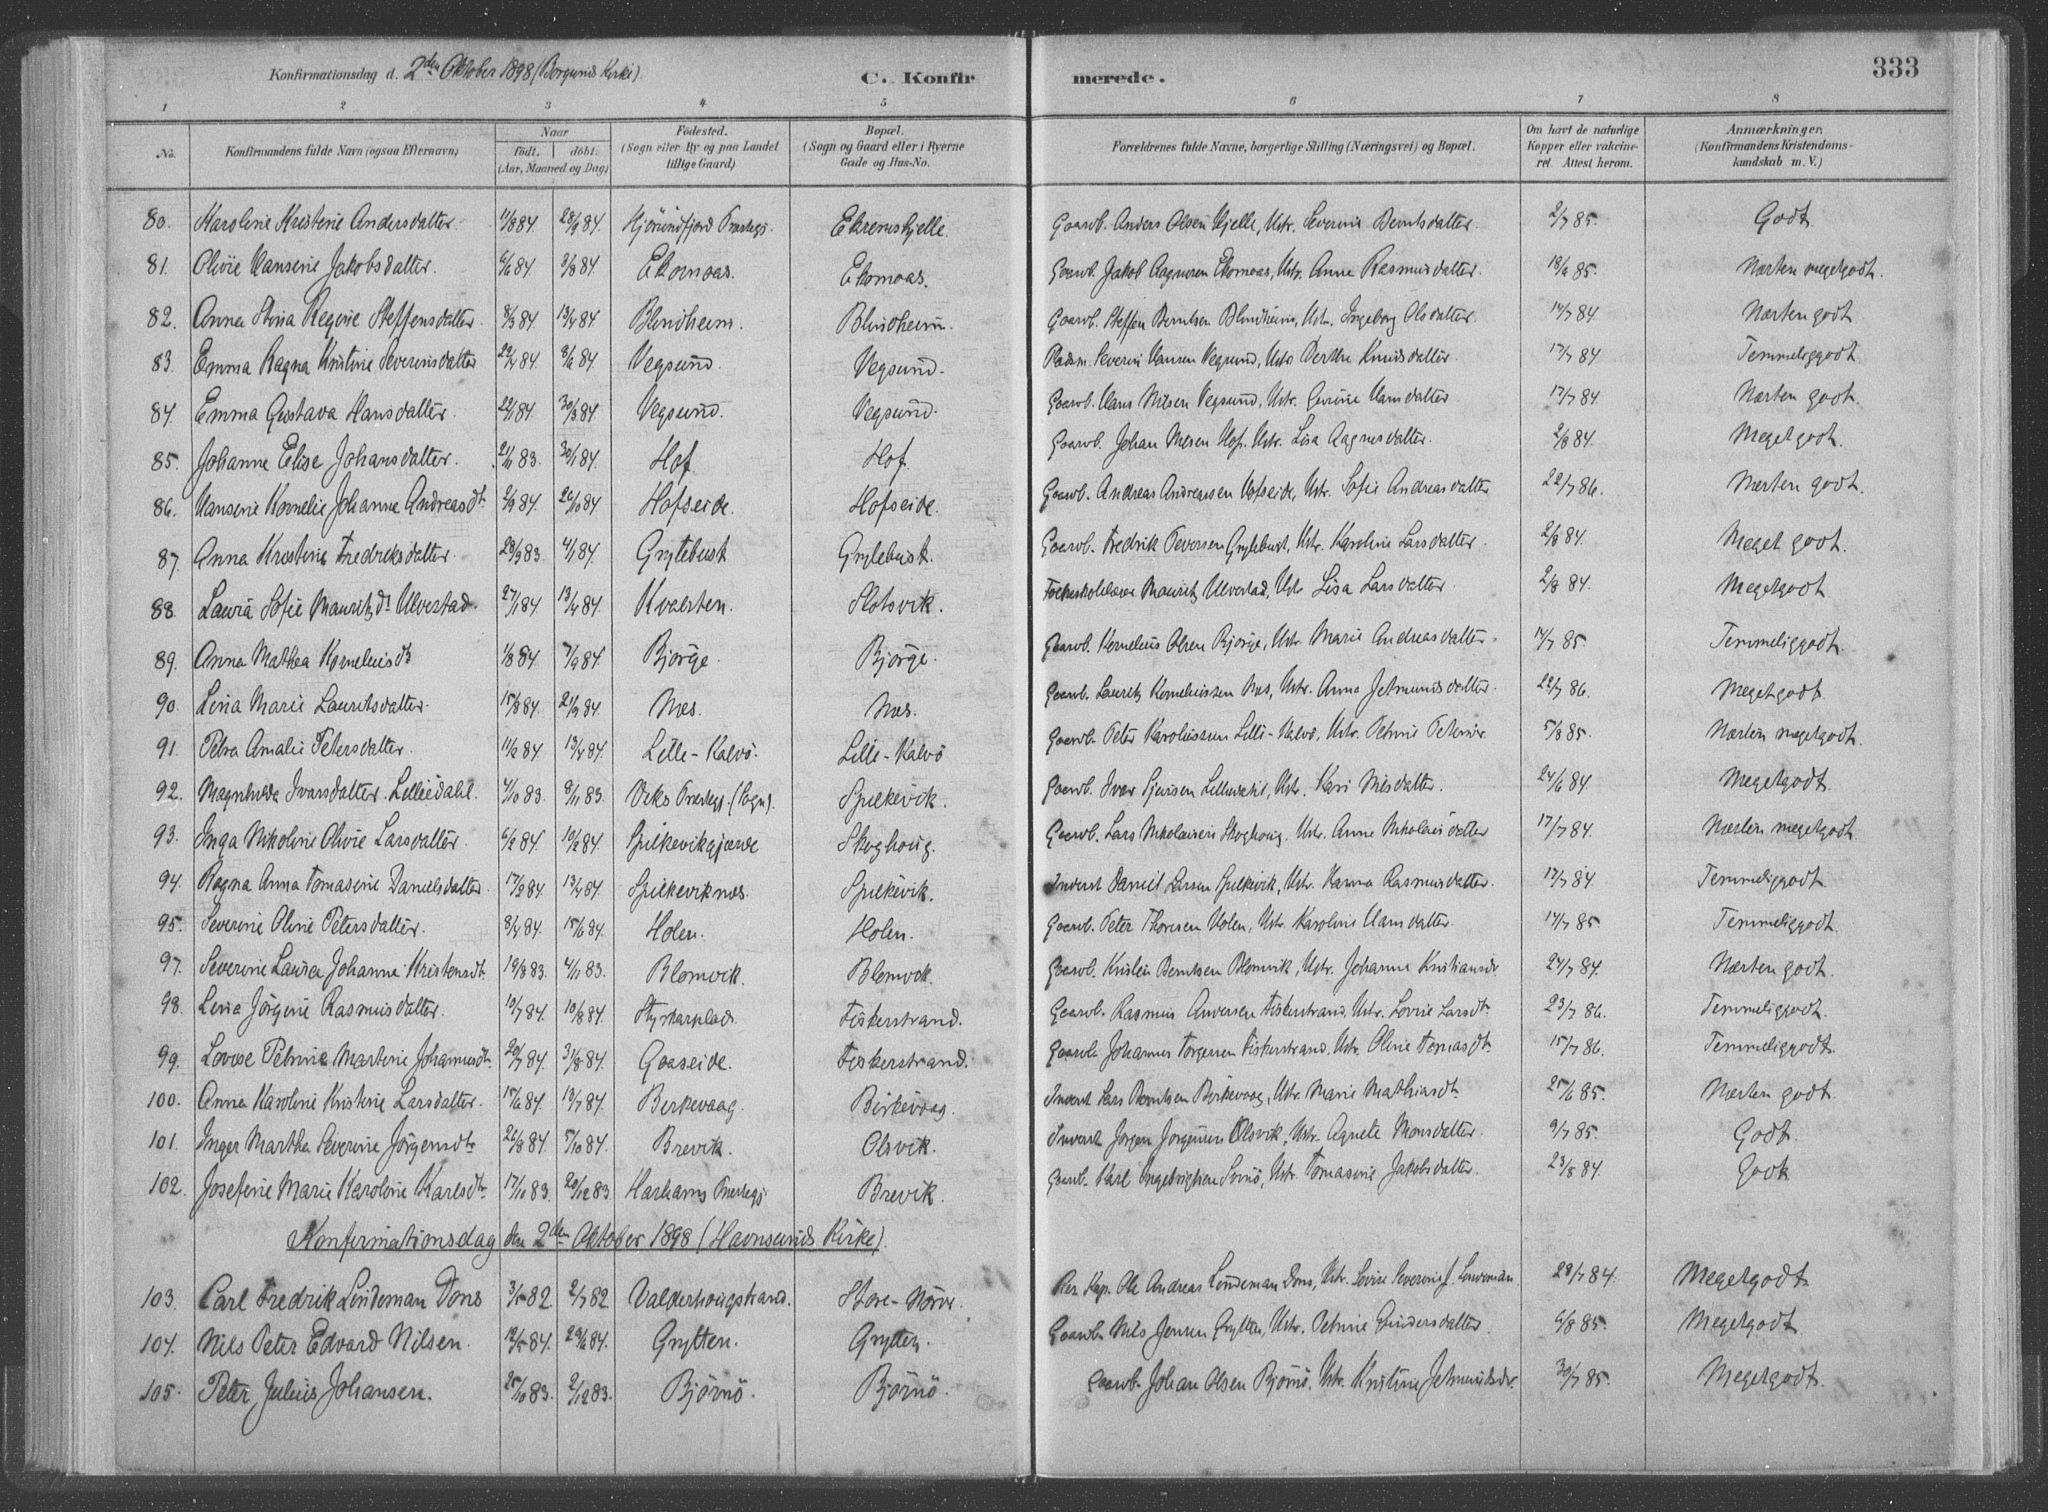 Konfirmationsdag d. 2den Oktober 1898 (Borgunds Kirke). C. Konfirmerede. 333
1 2 3 4 5 6 7 8
No. Konfirmandens fulde Navn (ogsaa Efternavn) Naar födt. döbt. (Aar, Maaned og Dag) Födested. (Sogn eller By og paa Landet tillige Gaard) Bopæl. (Sogn og Gaard eller i Byerne Gade og Hus-No. Forældrenes fulde Navne, borgerlige Stilling (Næringsvei) og Bopæl. Om havt de naturlige Kopper eller vakcineret. Attest herom. Anmærkninger. (Konfirmandens Kristendomskundskab m. V.)
80. Karoline Kristine Andersdatter. 11/8 84 28/9 84. Hjörundfjord Præstegj. Ekremshjelle. Gaardb. Anders Olsen Hjelle, Ustr. Severine Berntsdatter. 2/7 85. Godt.
81. Olivie Hansine Jakobsdatter. 6/6 84 3/8 84. Ekornaas. Ekornaas. Gaardb. Jakob Aagesen Ekornaas, Ustr. Anne Rasmusdatter. 18/6 85. Næsten megetgodt.
82. Anna Stina Regine Steffensdatter. 8/3 84 13/4 84 Blindheim. Blindheim. Gaardb. Steffen Berntsen Blindheim, Ustr. Ingeborg Olsdatter. 14/7 84. Næsten godt.
83. Emma Ragna Kristine Severinsdatter 22/4 84 8/6 84. Vegsund. Vegsund. Pladsm. Severin Hansen Vegsund, Ustr. Berthe Knudsdatter. 17/7 84 Temmeliggodt.
84. Emma Gustava Hansdatter. 22/1 84 30/3 84 Vegsund. Vegsund. Gaardb. Hans Nilsen Vegsund, Ustr. Gurine Hansdatter. 17/7 84. Næsten godt.
85. Johanne Elise Johansdatter. 21/11 83. 30/1 84. Hof. Hof. Gaardb. Johan Nilsen Hof. Ustr. Lisa Aagesdatter. 2/8 84. Megetgodt.
86. Hansine Kornelie Johanne Andreasdt. 2/9 84 26/10 84 Hofseide. Hofseide. Gaardb. Andreas Andreassen Hofseide, Ustr. Sofie Andreasdatter 22/7 86. Næsten godt.
87. Anna Kristine Fredriksdatter. 23/9 83 4/1 84. Grytebust Grytebust. Gaardb. Fredrik Iversen Grytebust, Ustr. Karoline Larsdatter. 2/8 84. Meget godt.
88. Laura Sofie Mauritzdt. Ulvestad. 27/1 84 13/4 84. Kvasten. Slotsvik. Folkeskolelærer Mauritz Ulvestad, Ustr. Lisa Larsdatter. 2/8 84. Megetgodt.
89. Anna Mathea Korneliusdt 1/8 84. 7/9 84. Bjorge. Bjorge. Gaardb. Kornelius Olsen Bjorge, Ustr. Marie Andreasdatter. 14/7 85. Temmeliggodt.
90. Lina Marie Lauritsdatter. 15/8 84. 21/9 84. Næs. Næs. Gaardb. Lauritz Korneliussen Næs, Ustr. Anna Jetmundsdatter. 22/7 86. Megetgodt.
91. Petra Amalie Petersdatter. 11/2 84 13/4 84. Lille-Kalvö. Lille-Kalvö Gaardb. Peter Karoliussen Lille-Kalvö, Ustr. Petrine Petersdr. 5/8 85. Næsten megetgodt.
92. Magnhilda Ivarsdatter Lilledahl. 4/10 83. 8/11 83. Viks Præstegj. (Sogn). Spilkevik. Gaardb. Ivar Lilledahl, Ustr. Kari Nilsdatter. 24/6 84. Megetgodt.
93. Inga Nikoline Olivie Larsdatter. 6/2 84. 10/2 84. Spilkevikgjærde Skoghoug. Gaardb. Lars Nikolaisen Skoghoug, Ustr. Anne Nikolaisdatter 17/7 84. Næsten megetgodt.
94. Ragna Anna Tomasine Danielsdatter. 17/3 84 13/4 84 Spilkeviknæs. Spilkevik. Inderst Daniel Larsen Spilkevik, Ustr. Hanna Rasmusdatter. 17/7 84. Temmeliggodt.
95. Severine Oline Petersdatter. 8/4 84. 15/6 84. Holen. Holen. Gaardb. Peter Thoresen Holen, Ustr. Karoline Hansdatter. 14/7 85. Temmeliggodt.
97. Severine Lauisa Johanne Kristensdt. 19/8 83. 4/11 83. Blomvik. Blomvik. Gaardb. Kristen Berntsen Blomvik, Ustr. Johanne Kristiansdr. 24/7 84. Næsten godt.
98. Lina Jörgine Rasmusdatter. 10/7 84. 10/8 84. Styrkarplads. Fiskerstrand. Gaardb. Rasmus Andersen Fiskerstrand, Ustr. Lovise Larsdt. 23/7 86. Temmeliggodt.
99. Lovise Petrine Martine Johannesdt. 20/7 84. 31/8 84. Gaaseide. Fiskerstrand. Gaardb. Johannes Torgersen Fiskerstrand, Ustr. Oline Tomasdt. 15/7 86. Temmeliggodt.
100. Anna Karoline Kristine Larsdatter. 15/6 84. 13/7 84. Birkevaag. Birkevaag. Inderst Lars Berntsen Birkevaag, Ustr. Marie Mathiasdt. 25/6 85. Næsten godt.
101. Inger Martha Severine Jörgensdt. 26/8 84. 5/10 84. Brevik. Olsvik. Inderst Jörgen Jörgensen Olsvik, Ustr. Agnete Monsdatter. 9/7 85. Godt.
102. Josefine Marie Karoline Karlsdt. 17/10 83. 26/12 83. Harhams Præstegj. Brevik. Gaardb. Karl Ingebrigtsen, Ustr. Tomasine Jakobsdatter. 23/8 84 Godt
Konfirmationsdag den 2den Oktober 1898 (Havnsunds Kirke).
103. Carl Fredrik Lindeman Dons 3/5 82. 2/7 82. Valderhougstrand. Store-Nörve. Res. Kap. Ole Andreas Lindeman Dons, Ustr. Lovise Severine f. 28/7 84. Megetgodt.
104. Nils Peter Edvard Nilsen. 12/5 84. 29/6 84. Grytten. Grytten. Gaardb. Nils Jensen Grytten, Ustr. Petrine Gundersdatter. 6/8 85. Megetgodt.
105. Peter Julius Johansen. 25/10 83. 2/12 83. Björnö Björnö. Gaardb. Johan Olsen Björnö, Ustr. Kristine Jetmundsdr. 30/7 85. Megetgodt.